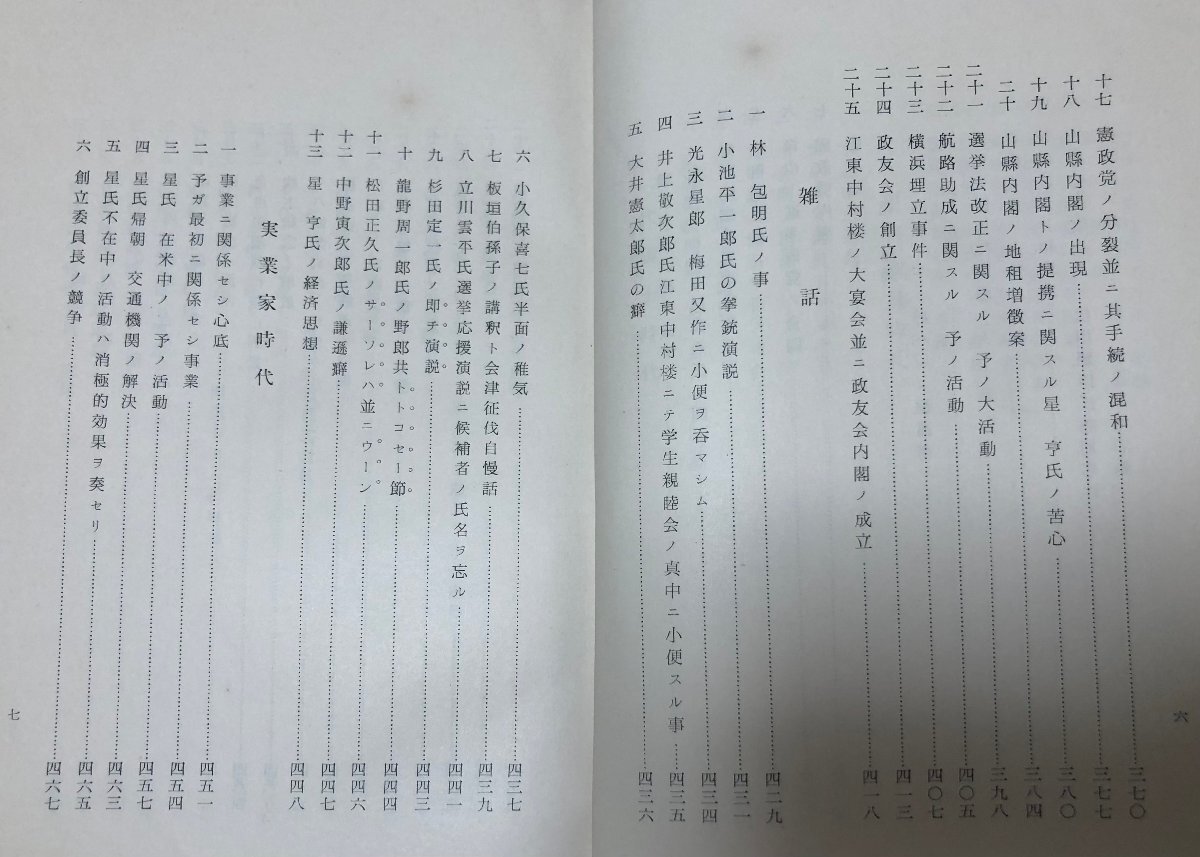 十七 憲政党ノ分裂並ニ其手続ノ混和……三七〇
十八 山縣内閣ノ出現……三七七
十九 山縣内閣トノ提携ニ関スル星 亨氏ノ苦心……三八〇
二十 山縣内閣ノ地租増徴案……三八四
二十一 選挙法改正ニ関スル 予ノ大活動……三九八
二十二 航路助成ニ関スル 予ノ活動……四〇五
二十三 横浜埋立事件……四〇七
二十四 政友会ノ創立……四一三
二十五 江東中村楼ノ大宴会並ニ政友会内閣ノ成立……四一八
雑話
一 林 包明氏ノ事……四二九
二 小池平一郎氏の拳銃演説……四三一
三 光永星郎 梅田又作ニ小便ヲ呑マシム……四三四
四 井上敬次郎氏江東中村楼ニテ学生親睦会ノ真中ニ小便スル事……四三五
五 大井憲太郎氏の癖……四三六
六
六 小久保喜七氏半面ノ稚気……四三七
七 板垣伯孫子ノ講釈ト会津征伐自慢話……四三九
八 立川雲平氏選挙応援演説ニ候補者ノ氏名ヲ忘ル……四四一
九 杉田定一氏ノ即チ演説……四四三
十 龍野周一郎氏ノ野郎共トトコセー節……四四四
十一 松田正久氏ノサーソレハ並ニウーン……四四六
十二 中野寅次郎氏ノ謙遜癖……四四七
十三 星 亨氏ノ経済思想……四四八
実業家時代
一 事業ニ関係セシ心底……四五一
二 予ガ最初ニ関係セシ事業……四五四
三 星氏 在米中ノ 予ノ活動……四五七
四 星氏帰朝 交通機関ノ解決……四六三
五 星氏不在中ノ活動ハ消極的効果ヲ奏セリ……四六五
六 創立委員長ノ競争……四六七
七